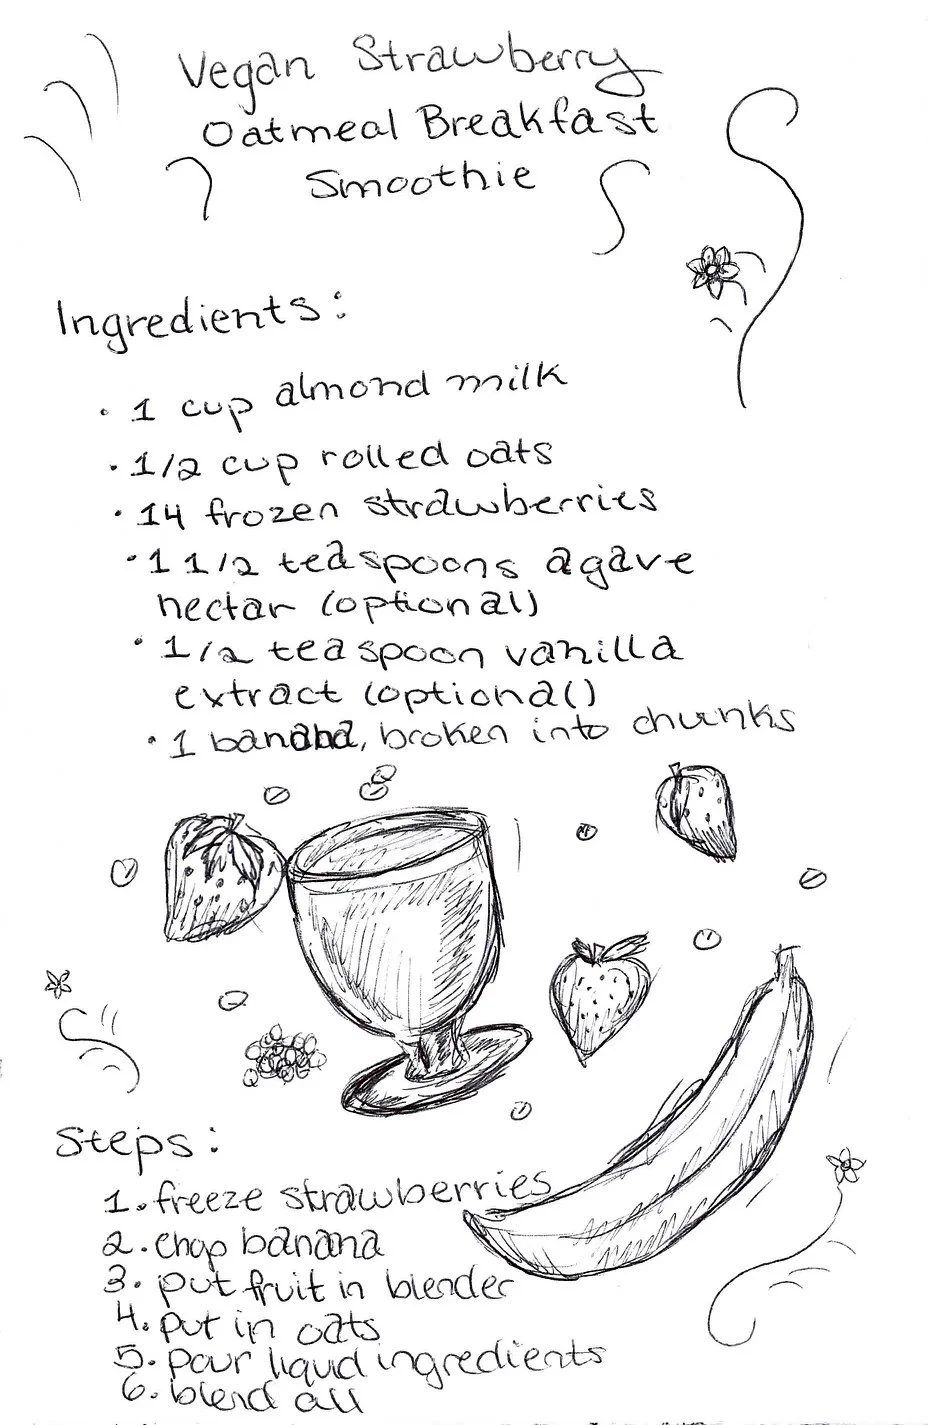 Vegan Strawberry
Oatmeal Breakfast
Smoothie
Ingredients:
· 1 cup almond milk
· 1/2 cup rolled oats
· 14 frozen strawberries
· 1 1/2 teaspoons agave
nectar (optional)
· 1/2 teaspoon vanilla
extract (optional)
· 1 banana, broken into chunks
Steps:
1. freeze strawberries
2. chop banana
3. put fruit in blender
4. put in oats
5. pour liquid ingredients
6. blend all